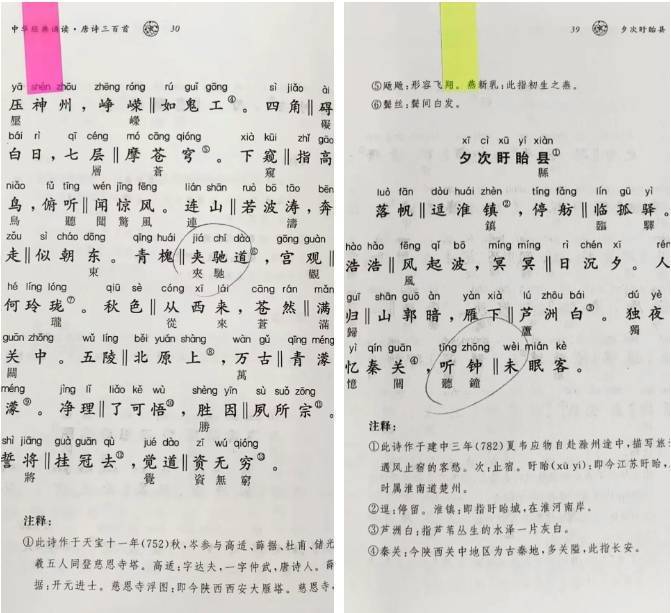 中华经典诵读·唐诗三百首 30
yā shén zhōu zhēng róng rú guǐ gōng sì jiǎo ài
压神州，峥嵘‖如鬼工④。四角‖碍
壓 嶸 礙
bái rì qī céng mó cāng qióng xià kuī zhǐ gāo
白日，七层‖摩苍穹⑤。下窥‖指高
層 蒼 窺
niǎo fǔ tīng wén jīng fēng lián shān ruò bō tāo bēn
鸟，俯听‖闻惊风。连山‖若波涛，奔
鳥 聽 聞 驚 風 連 濤
zǒu sì cháo dōng qīng huái jiá chí dào gōng guàn
走‖似朝东。青槐‖夹驰道⑥，宫观‖
東 夾馳 觀
hé líng lóng qiū sè cóng xī lái cāng rán mǎn
何玲珑⑦。秋色‖从西来，苍然‖满
瓏 從 來 蒼 滿
guān zhōng wǔ líng běi yuán shàng wàn gǔ qīng méng
关中。五陵‖北原上⑧，万古‖青濛
關 萬
méng jìng lǐ liǎo kě wù shèng yīn sù suǒ zōng
濛⑨。净理‖了可悟⑩，胜因‖夙所宗⑪。
勝
shì jiāng guà guān qù jué dào zī wú qióng
誓将‖挂冠去⑫，觉道‖资无穷⑬。
將 覺 資無窮
注释：
①此诗作于天宝十一年(752)秋，岑参与高适、薛据、杜甫、储光
羲五人同登慈恩寺塔。高适：字达夫，一字仲武，唐诗人。薛
据：开元进士。慈恩寺浮图：即今陕西西安大雁塔。慈恩寺，
39 夕次盱眙县
⑤飏飏：形容飞翔。燕新乳：此指初生之燕。
⑥鬓丝：鬓间白发。
xī cì xū yí xiàn
夕次盱眙县①
縣
luò fān dòu huái zhèn tíng fǎng lín gū yì
落帆‖逗淮镇②，停舫‖临孤驿。
鎮 臨 驛
hào hào fēng qǐ bō míng míng rì chén xī rén
浩浩‖风起波，冥冥‖日沉夕。人
風
guī shān guō àn yàn xià lú zhōu bái dú yè
归‖山郭暗，雁下‖芦洲白③。独夜
歸 蘆 獨
yì qín guān tīng zhōng wèi mián kè
忆秦关④，听钟‖未眠客。
憶 關 聽鐘
注释：
①此诗作于建中三年(782)夏韦应物自赴滁州途中，描写旅
遇风止宿的客愁。次：止宿。盱眙(xū yí)：即今江苏盱眙，
时属淮南道楚州。
②逗：停留。淮镇：即指盱眙城，在淮河南岸。
③芦洲白：指芦苇丛生的水泽一片灰白。
④秦关：今陕西关中地区为古秦地，多关隘，此指长安。